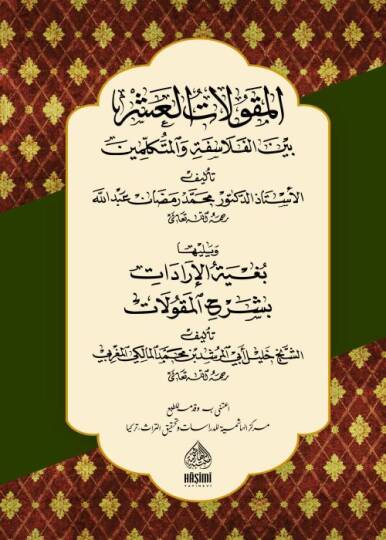 المقولات العشر
بين الفلاسفة والمتكلمين
تأليف
الأستاذ الدكتور محمد رمضان عبد الله
رحمه الله تعالى
ويليها
بغية الإرادات
بشرح المقولات
تأليف
الشيخ خليل أبي المرشد بن محمد المالكي المغربي
رحمه الله تعالى
اعتنى به وقدمه للطبع
مركز الهاشمية للدراسات وتحقيق التراث، تركيا
HÂŞİMİ
YAYINEVİ